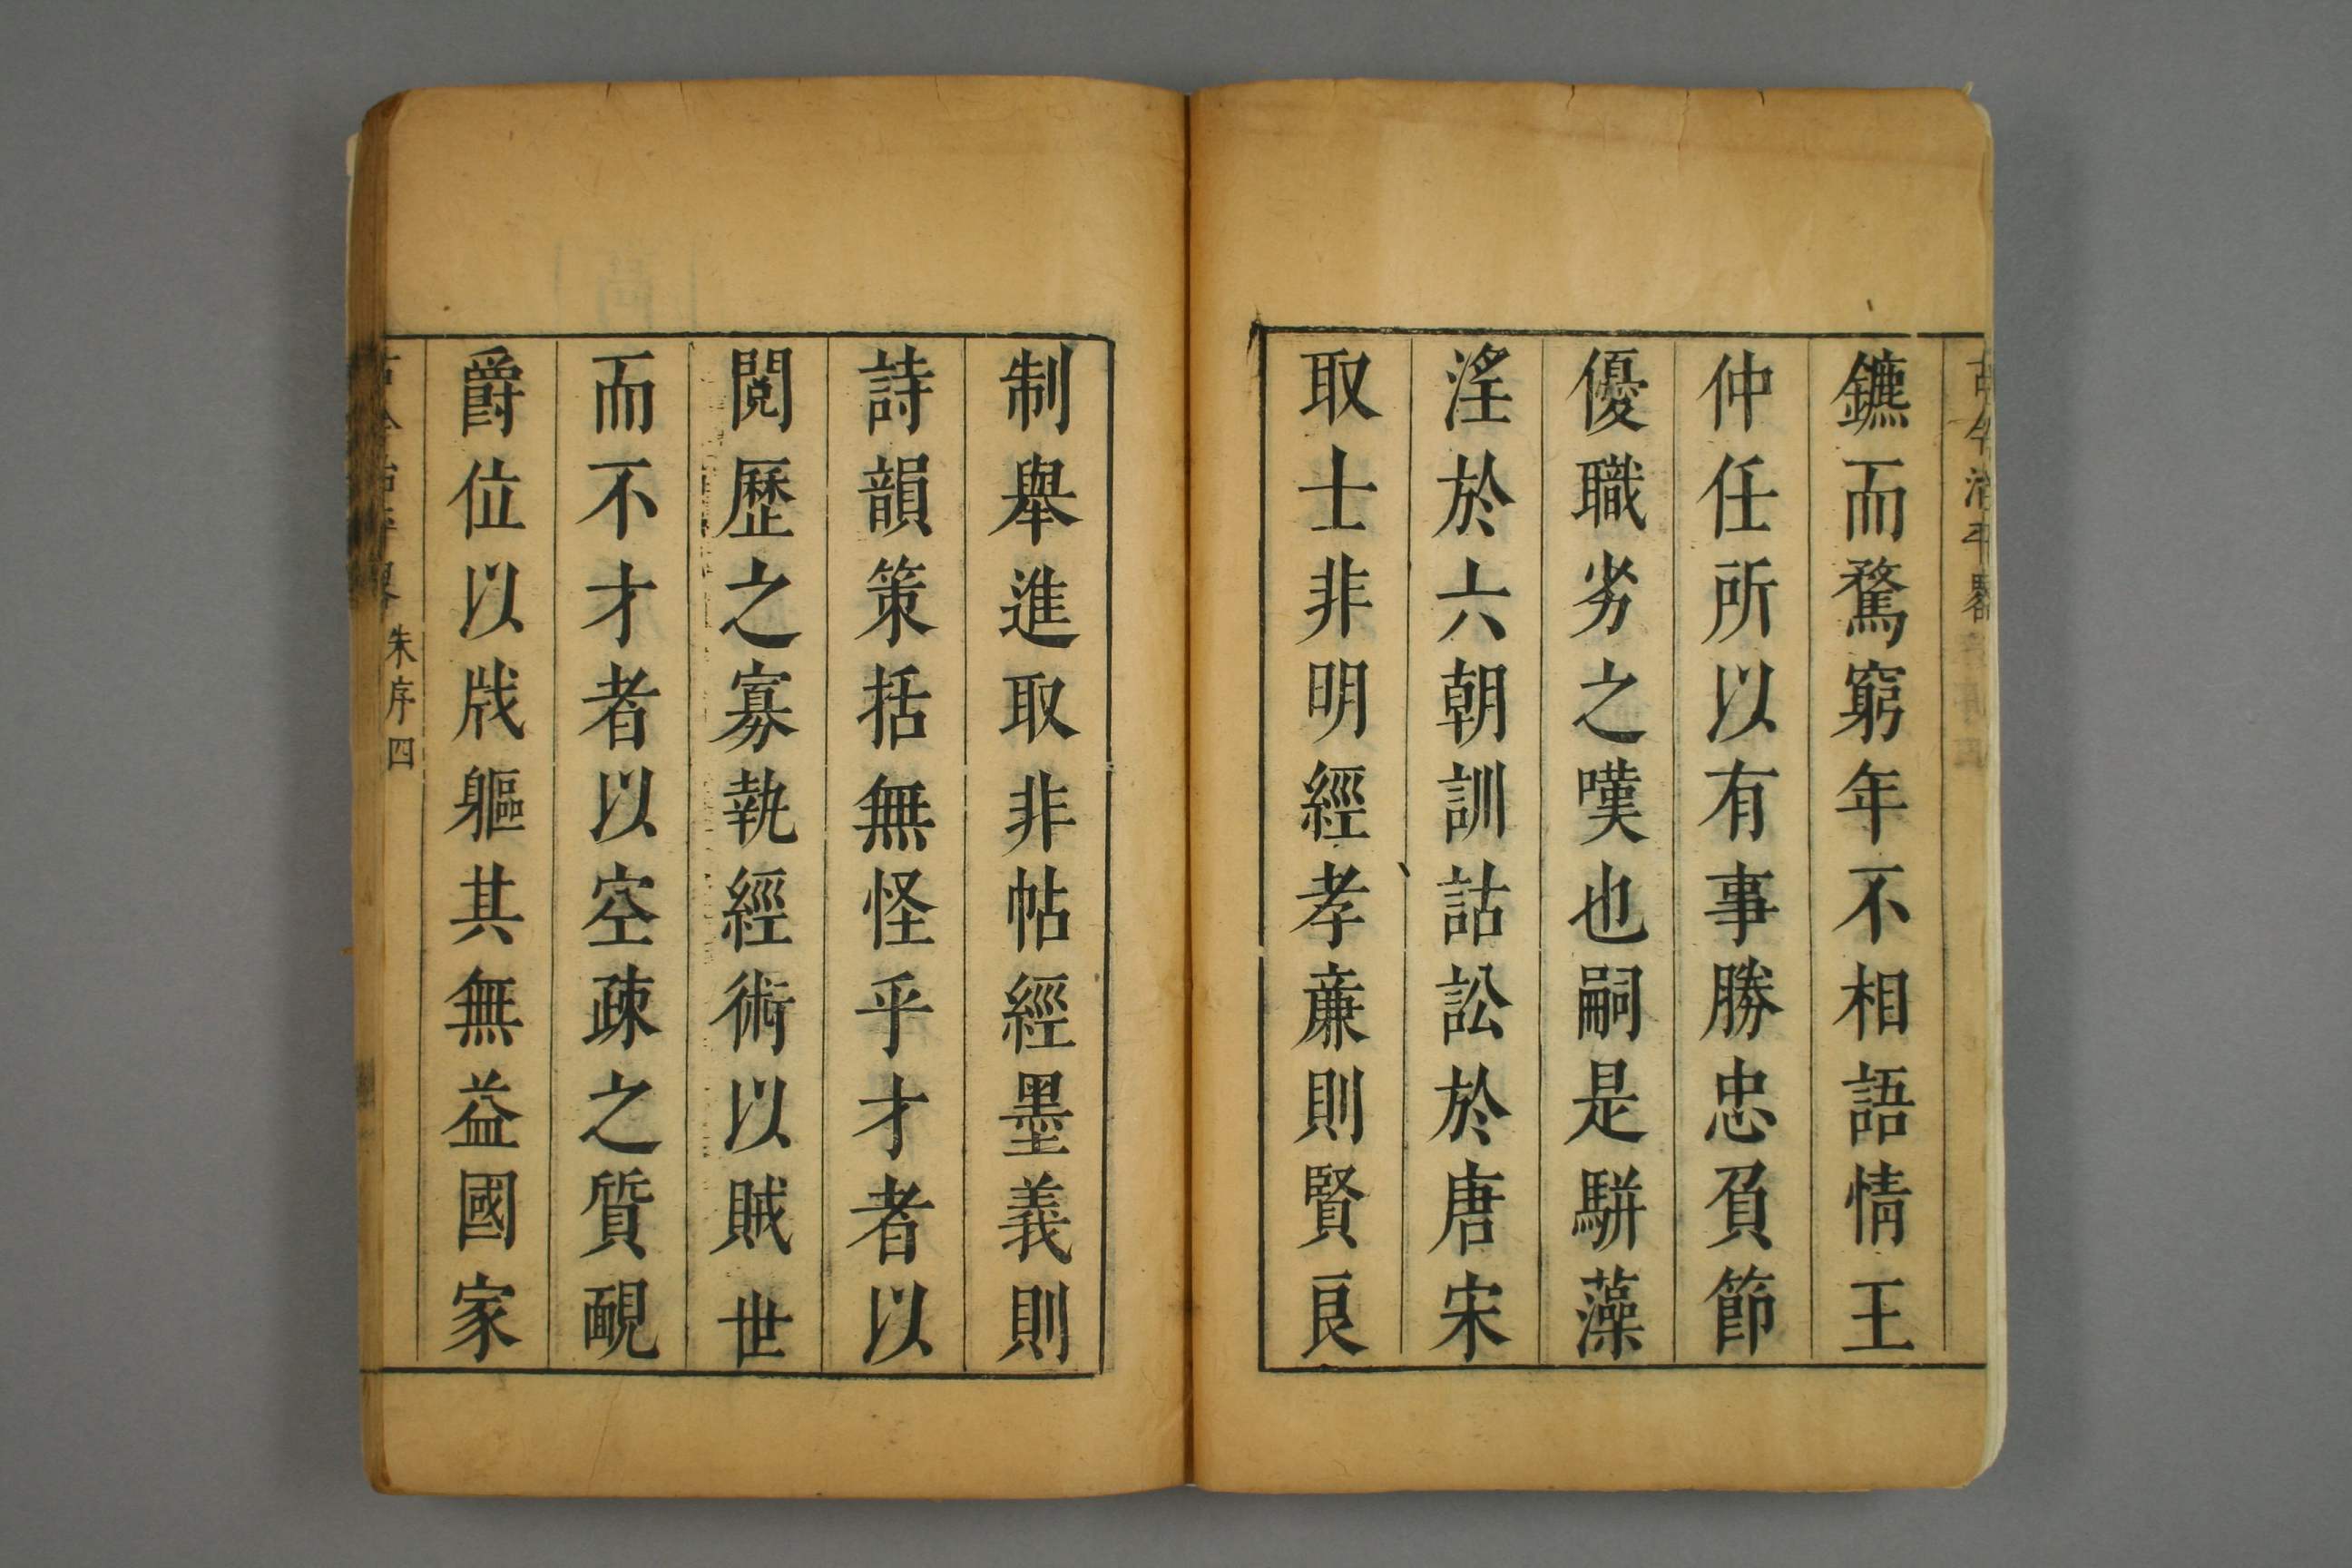 古今治平畧
鑣而騖窮年不相語情王
仲任所以有事勝忠負節
優職劣之嘆也嗣是駢藻
淫於六朝訓詁訟於唐宋
取士非明經孝廉則賢良
制舉進取非帖經墨義則
詩韻策括無怪乎才者以
閱歷之寡執經術以賊世
而不才者以空疎之質靦
爵位以戕軀其無益國家
朱序四